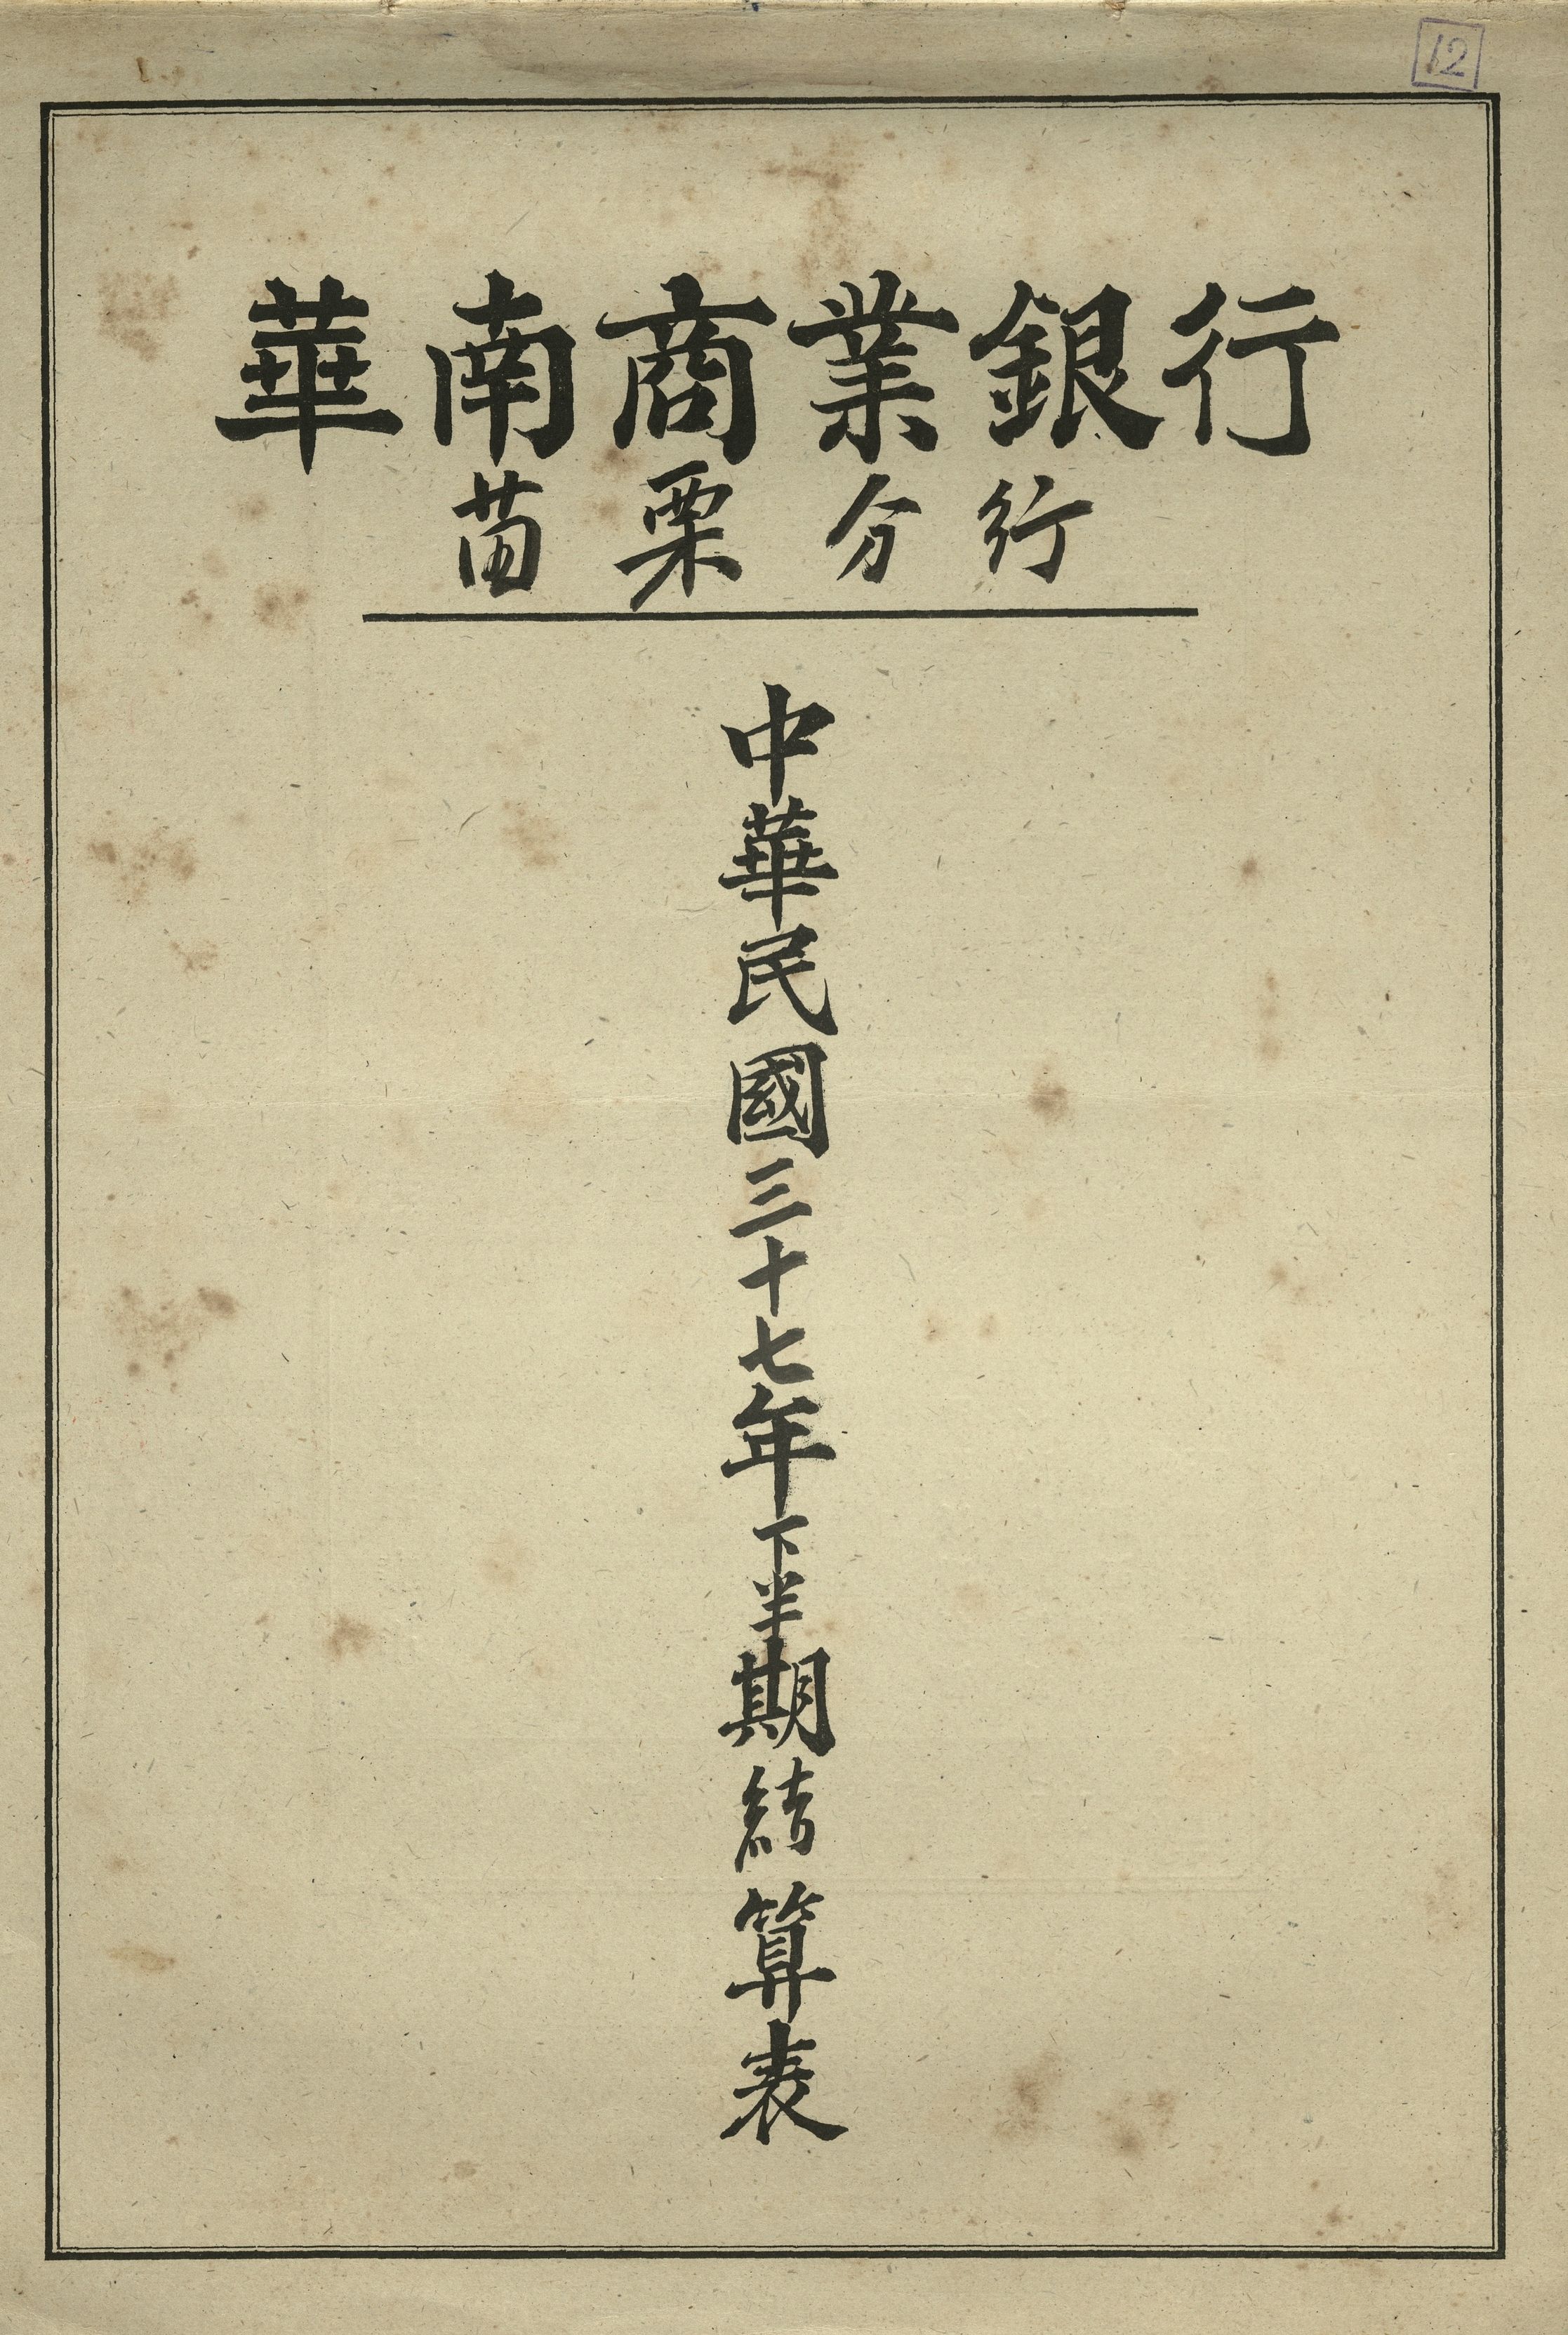 12
華南商業銀行
苗栗分行
中華民國三十七年下半期結算表